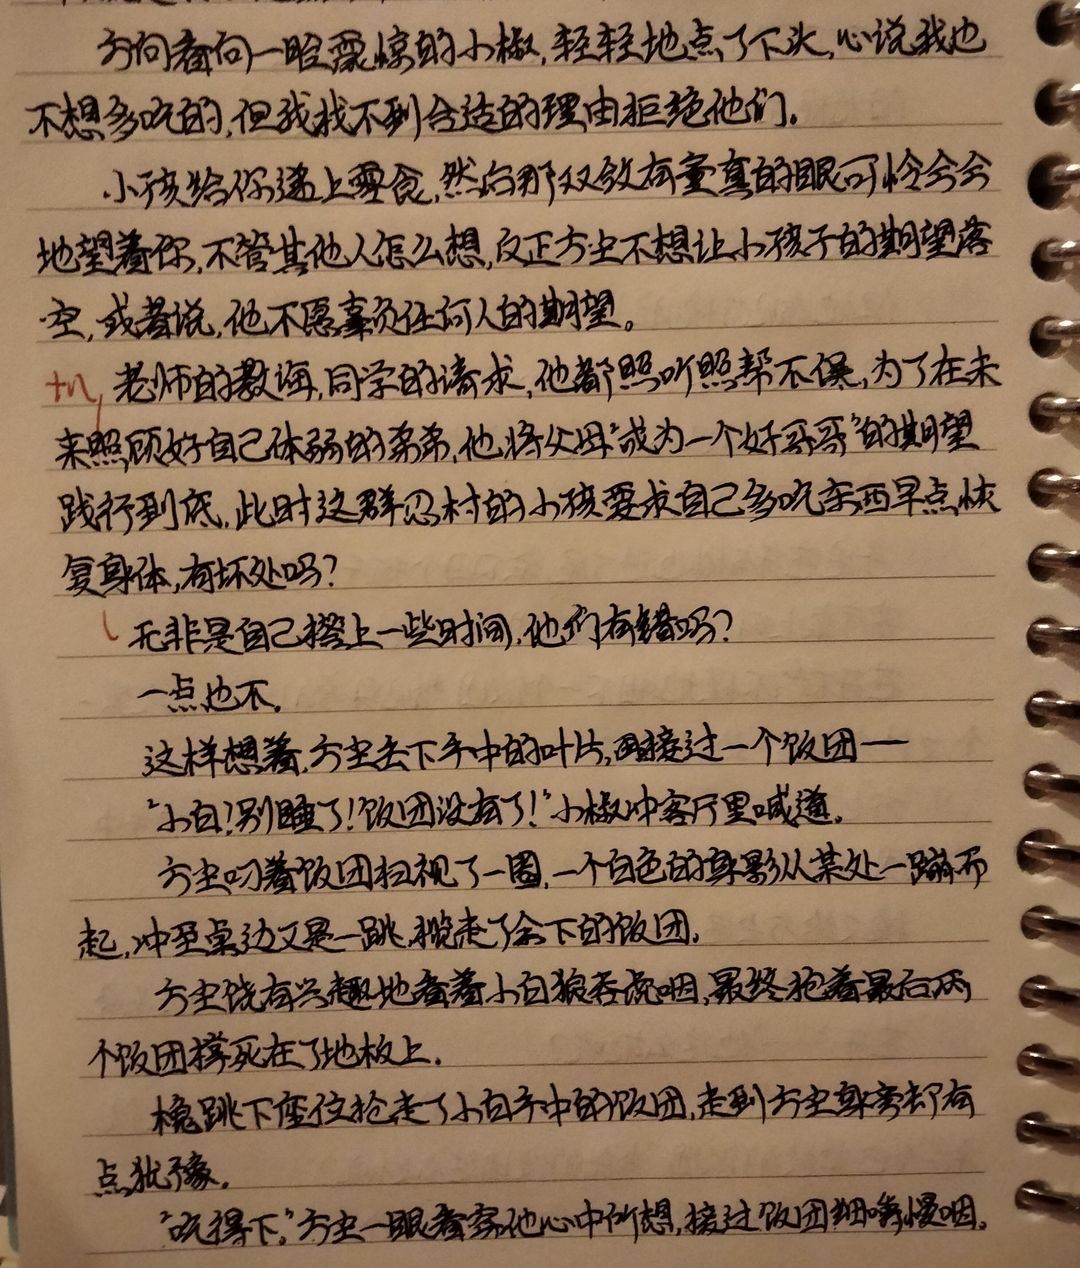 方向看向一脸震惊的小椒,轻轻地点了下头,心说我也
不想多吃的,但我找不到合适的理由拒绝他们。
小孩给你递上零食,然后那双放有童真的眼可怜兮兮
地望着你,不管其他人怎么想,反正方尘不想让小孩子的期望落
空,或者说,他不愿辜负任何人的期望。
老师的教诲,同学的请求,他都照听照帮不误,为了在未
来照顾好自己体弱的弟弟,他将父母“成为一个好哥哥”的期望
践行到底,此时这群忍村的小孩要求自己多吃东西早点恢
复身体,有坏处吗?
无非是自己搭上一些时间,他们有错吗?
一点也不。
这样想着,方尘丢下手中的叶片,接过一个饭团——
“小白!别睡了!饭团没有了!”小椒冲客厅里喊道。
方尘叼着饭团扫视了一圈,一个白色的身影从某处一蹦而
起,冲至桌边又是一跳,揽走了余下的饭团。
方尘饶有兴趣地看着小白狼吞虎咽,最终抱着最后两
个饭团撑死在了地板上。
跳下座位抢走了小白手中的饭团,走到方尘身旁却有
点犹豫。
“吃得下。”方尘一眼看穿他心中所想,接过饭团细嚼慢咽。